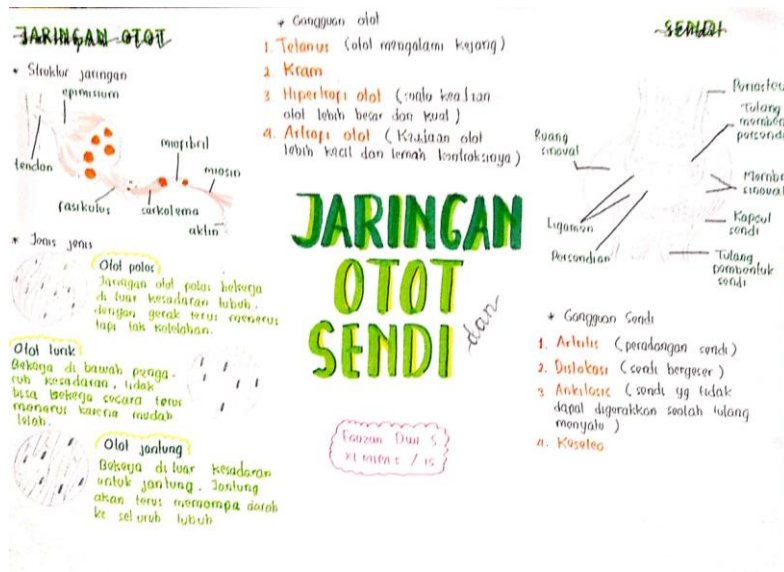 JARINGAN OTOT
* Struktur jaringan
epimisium
tendon
miofibril
miosin
fasikulus
sarkolema
aktin
* Jenis jenis
Otot polos
Jaringan otot polos bekerja
di luar kesadaran tubuh.
dengan gerak terus menerus
tapi tak kelelahan.
Otot lurik
Bekerja di bawah penga-
ruh kesadaran, tidak
bisa bekerja secara terus
menerus karena mudah
lelah.
Otot jantung
Bekerja diluar kesadaran
untuk jantung. Jantung
akan terus memompa darah
ke seluruh tubuh
* Gangguan otot
1. Tetanus (otot mengalami kejang)
2. Kram
3. Hipertropi otot (suatu keadaan
otot lebih besar dan kuat)
4. Artropi otot (Keadaan otot
lebih kecil dan lemah kontraksinya)
JARINGAN
OTOT
dan
SENDI
Fauzan Dwi S
XI MIPA 5 / 15
SENDI
Periosteu
Tulang
memben
persendi
Ruang
sinovial
Membr
sinovial
Ligamen
Kapsul
sendi
Persendian
Tulang
pembentuk
sendi
* Gangguan Sendi
1. Artritis (peradangan sendi)
2. Dislokasi (sendi bergeser)
3. Ankilosis (sendi yg tidak
dapat digerakkan seolah tulang
menyatu)
4. Keseleo